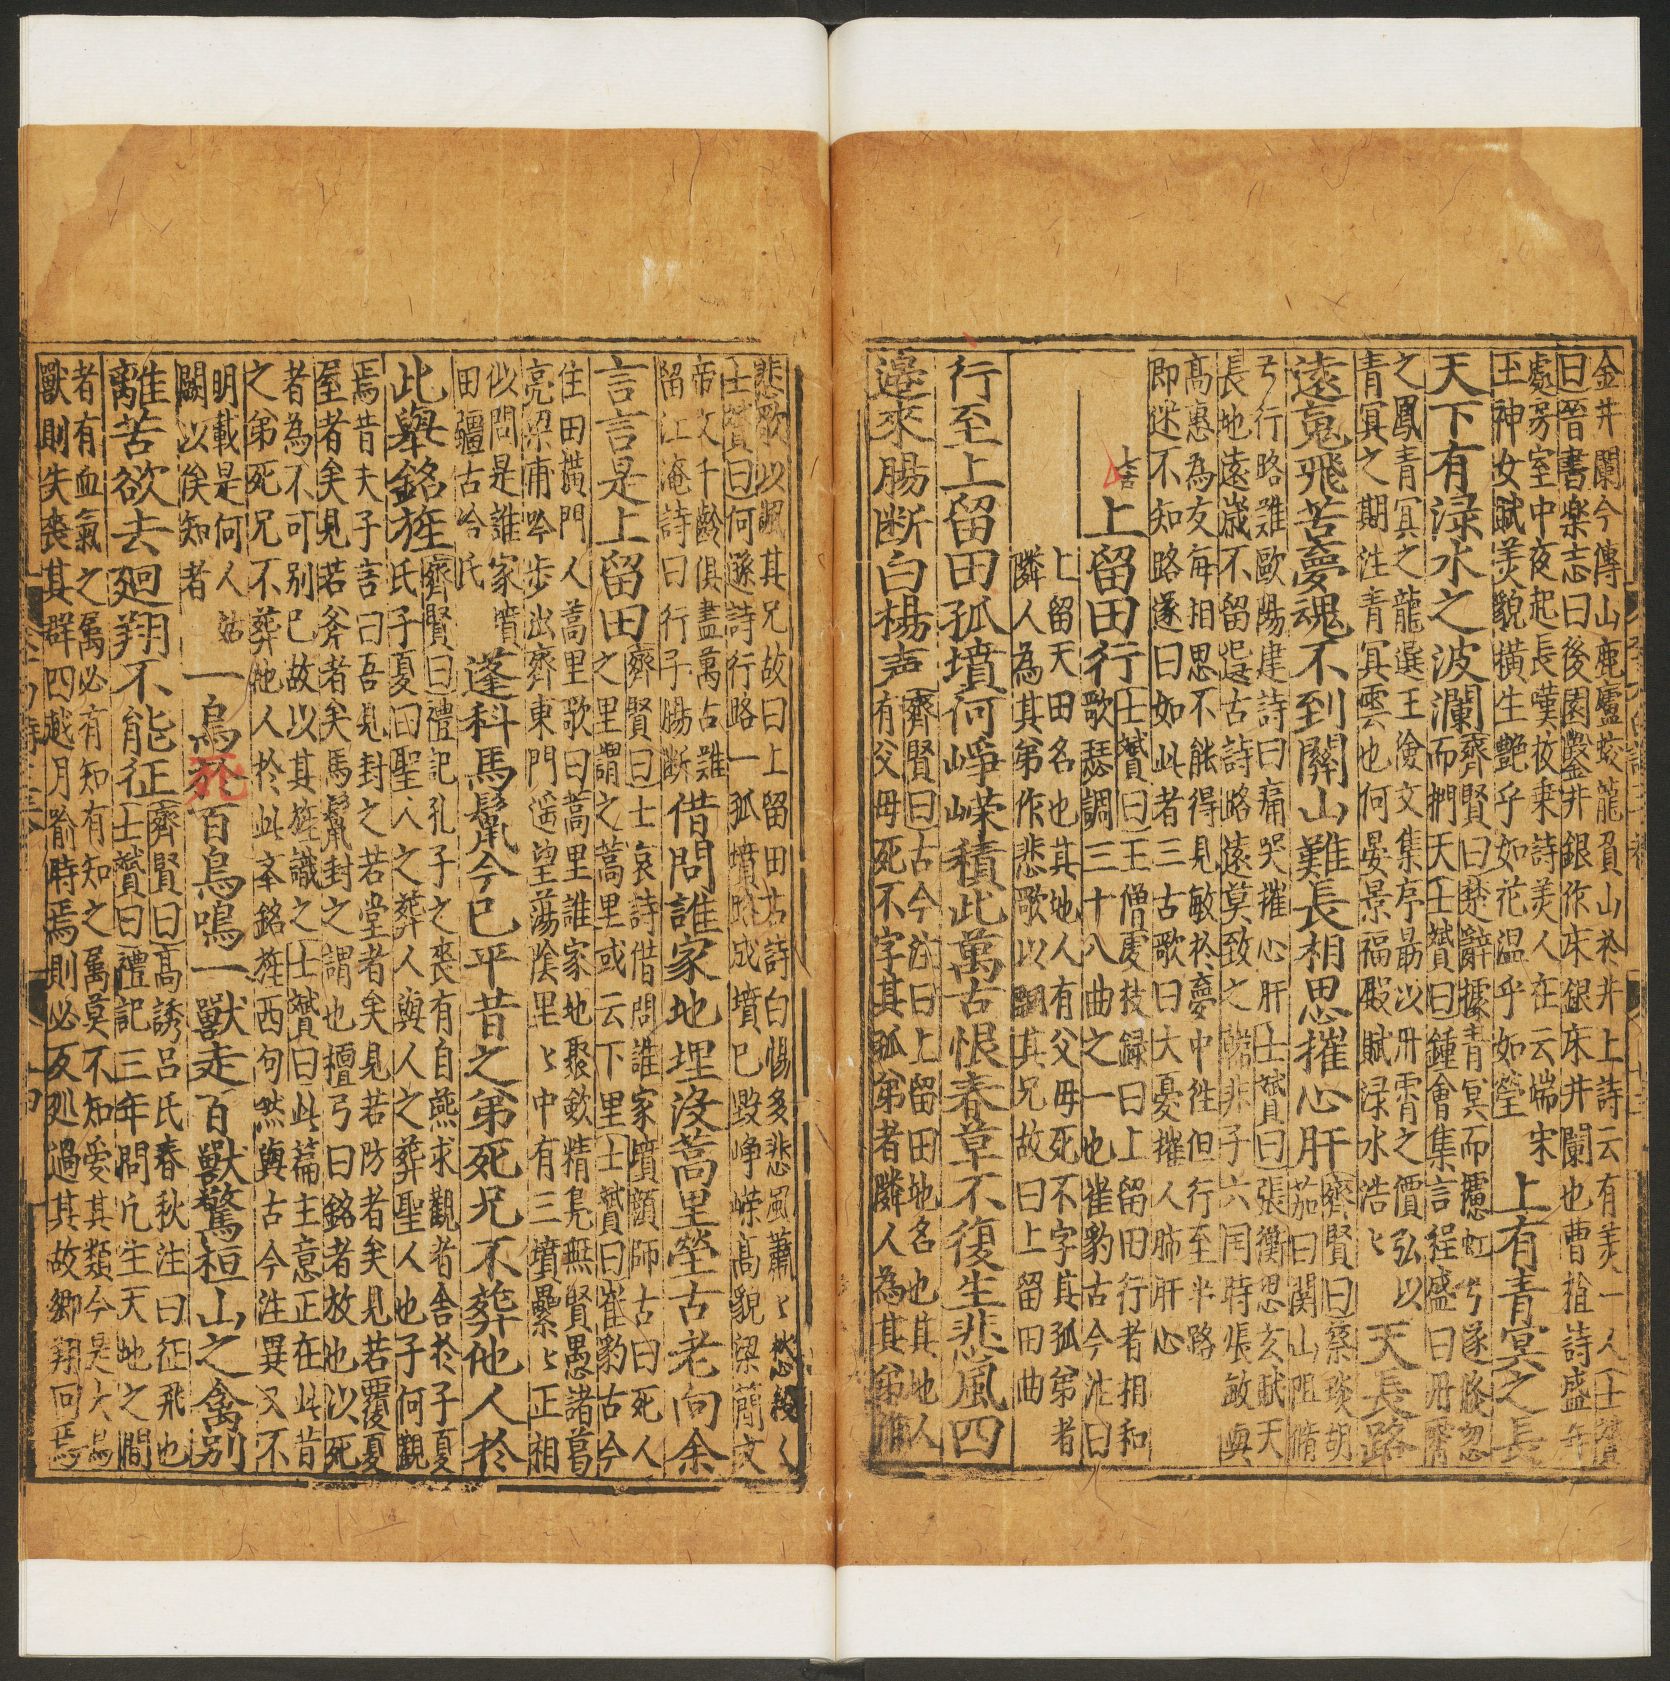 金井闌今傳山鹿盧蛟龍負山於井上詩云有美一人士贇
曰晉書樂志曰後園鑿井銀作床銀床井闌也曹植詩盛年
處房室中夜起長嘆枚乘詩美人在云端宋
玉神女賦美貌橫生艷乎如花溫乎如瑩
上有青冥之長
天下有渌水之波瀾
齊賢曰楚辭據青冥而攄虹兮遂倏忽
而捫天士贇曰鍾會集言程盛曰丹霄
之鳳青冥之龍選王儉文集序最以丹霄之價弘以
青冥之期注青冥雲也何晏景福殿賦渌水浩〻
天長路
遠䰟飛苦夢魂不到關山難長相思摧心肝
齊賢曰蔡琰胡
茄曰関山阻脩
兮行路難歐陽建詩曰痛哭摧心肝士贇曰張衡思玄賦天
長地遠歲不留選古詩路遠莫致之韓非子六囯時張敏與
高惠為友每相思不能得見敏於夢中徃但行至半路
即迷不知路遂曰如此者三古歌曰大憂摧人肺肝心
上留田行
歌瑟調三十八曲之一也崔豹古今注曰
士贇曰王僧虔技録曰上留田行者相和
上留天田名也其地人有父母死不字其孤弟者
隣人為其弟作悲歌以諷其兄故曰上留田曲
行至上留田孤墳何崢嶸積此萬古恨春草不復生悲風四
邉來膓断白楊声
齊賢曰古今注曰上留田地名也其地人
有父母死不字其孤弟者隣人為其弟作
悲歌以諷其兄故曰上留田古詩白楊多悲風蕭〻愁殺人
士贇曰何遜詩行路一孤墳路成墳已毀崢嶸高貌梁簡文
帝文千齡俱盡萬古誰
留江淹詩曰行子膓断
借問誰家地埋没蒿里塋古老向余
言言是上留田
齊賢曰士哀詩借問誰家墳顔師古曰死人
之里謂之蒿里或云下里士贇曰崔豹古今
住田橫門人蒿里歌曰蒿里誰家地聚歛精䰟無賢愚諸葛
亮梁甫吟步出齊東門遥望蕩陰里〻中有三墳纍〻正相
似問是誰家墳
田疆古冶氏
蓬科馬鬛今已平昔之弟死兄不葬他人於
此舉銘旌
齊賢曰禮記孔子之喪有自燕求觀者舎於子夏
氏子夏曰聖人之葬人與人之葬聖人也子何觀
焉昔夫子言曰吾見封之若堂者矣見若防者矣見若覆夏
屋者矣見若斧者矣馬鬛封之謂也檀弓曰銘者故也以死
者為不可别已故以其旌識之士贇曰此篇主意正在此昔
之弟死兄不葬他人於此举銘旌西句然與古今注異又不
明載是何人姑
闕以俟知者
一鳥死百鳥鳴一獸走百獸驚桓山之禽别
離苦欲去廻翔不能征
齊賢曰高誘吕氏春秋注曰征飛也
士贇曰禮記三年問凢生天地之間
者有血氣之属必有知有知之属莫不知愛其類今是大鳥
獸則失喪其群匹越月踰時焉則必反廵過其故鄉翔囘焉